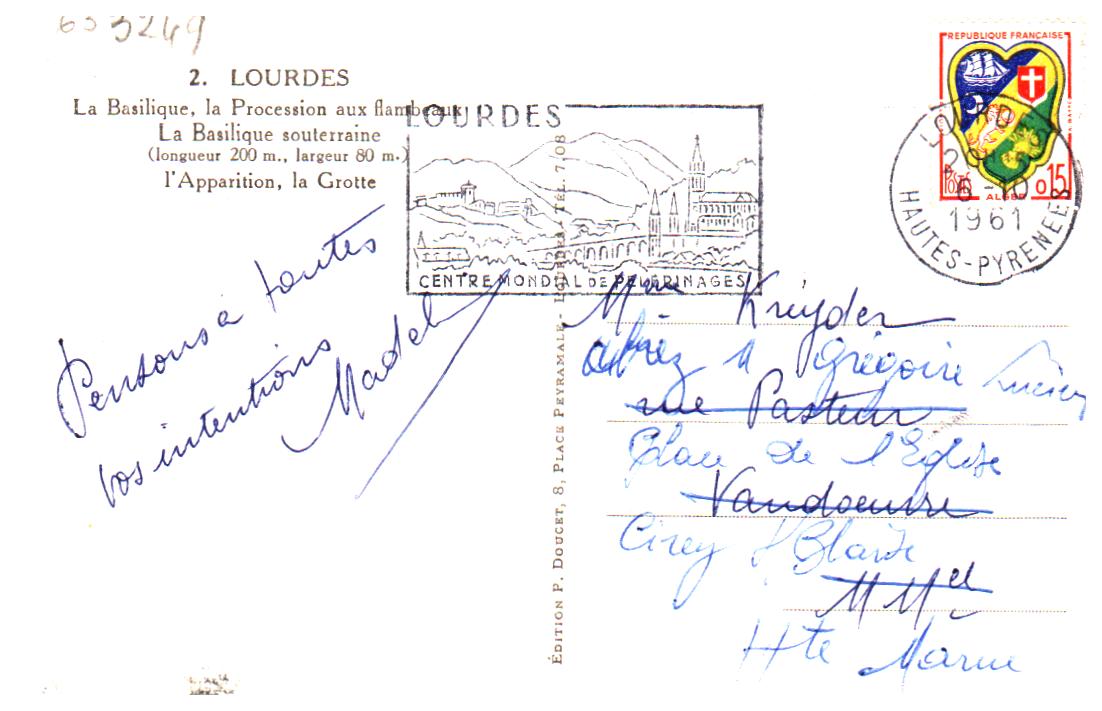 653249
2. LOURDES
La Basilique, la Procession aux flambeaux
La Basilique souterraine
(longueur 200 m., largeur 80 m.)
l'Apparition, la Grotte
LOURDES
CENTRE MONDIAL DE PELERINAGES
REPUBLIQUE FRANÇAISE
POSTES
0,15
ALGER
6-10
1961
HAUTES-PYRENEES
Pensons à toutes
vos intentions
Madel
ÉDITION P. DOUCET, 8, PLACE PEYRAMALE - LOURDES. TÉL. 7.08
Mme Kreyder
chez M Grégoire Lucien
rue Pasteur
Place de l'Eglise
Vandoeuvre
Cirey s/ Blaise
M Mel
Hte Marne